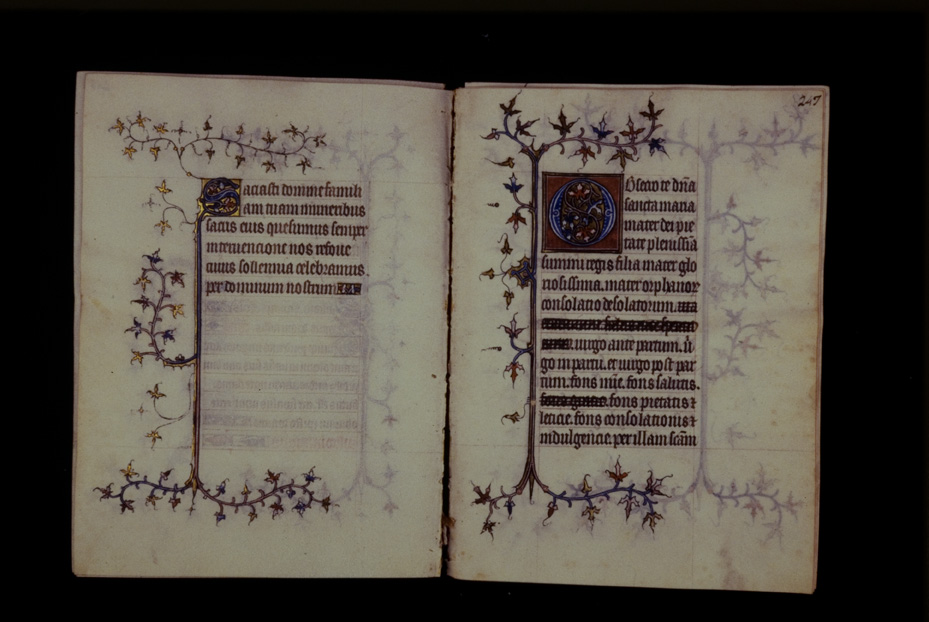 Saciasti domine famili
am tuam muneribus
sacris eius quesumus semper
interuencione nos refoue
cuius sollennia celebramus.
per dominum nostrum
247
Obsecro te dña
sancta maria
mater dei pie
tate plenissĩa
summi regis filia mater glo
riosissima. mater orphanor
consolatio desolatorum.
uirgo ante partum. ũ
go in partu. et uirgo post par
tum. fons mĩe. fons salutis.
fons pietatis ⁊
leticie. fons consolationis ⁊
indulgencie. per illam scãm